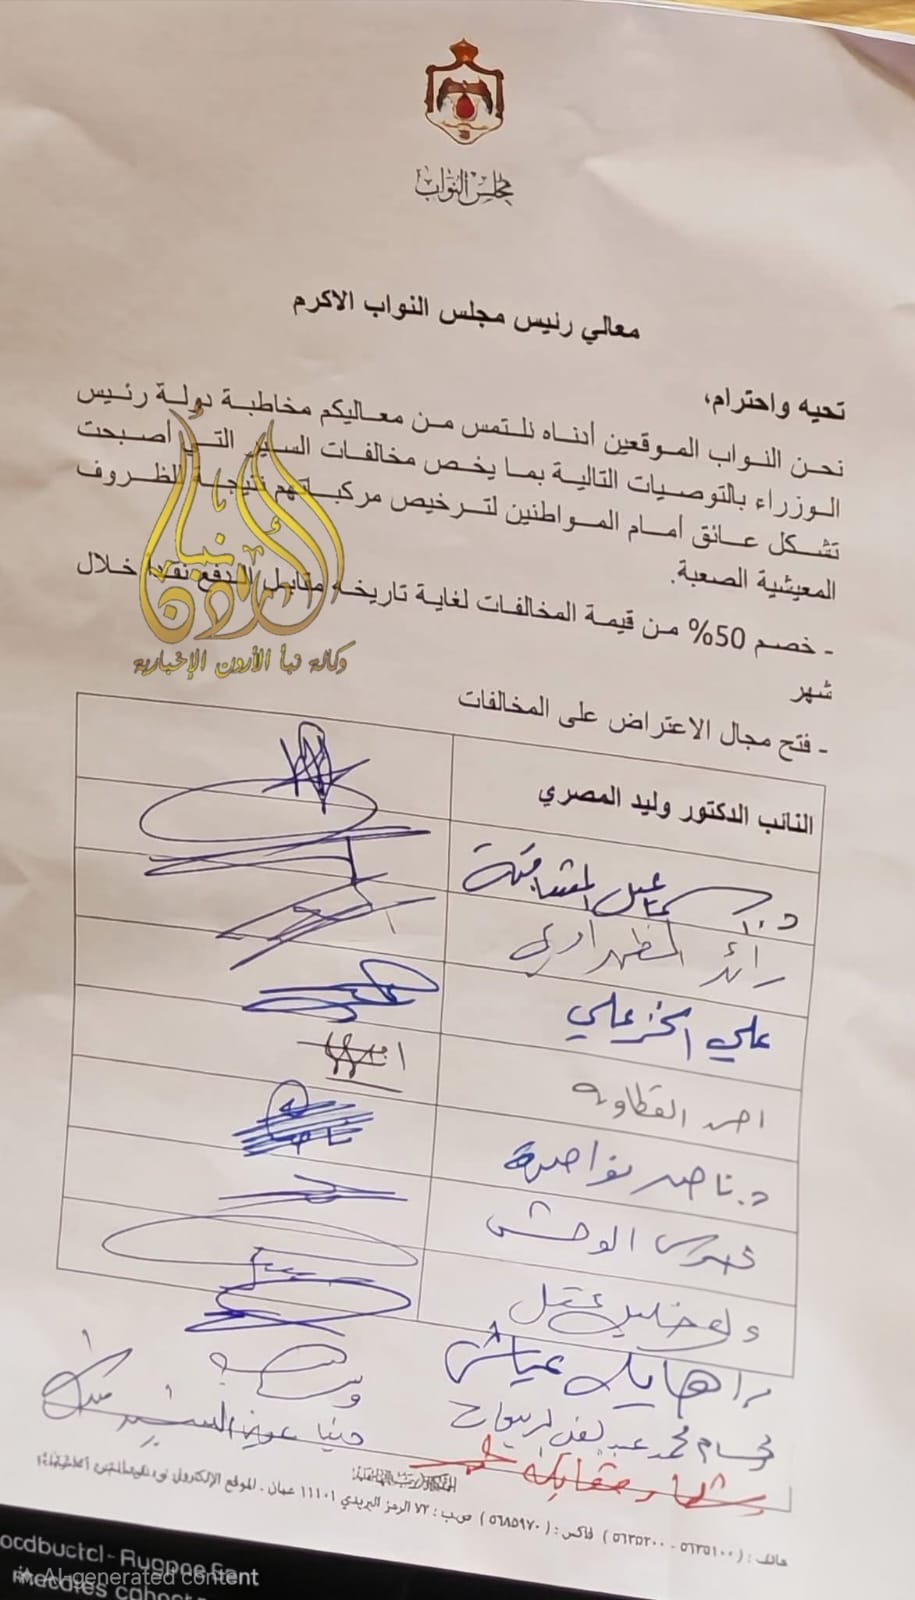 مجلس النواب
معالي رئيس مجلس النواب الاكرم
تحيه واحترام،
نحن النواب الموقعين أدناه نلتمس من معاليكم مخاطبة دولة رئيس
الوزراء بالتوصيات التالية بما يخص مخالفات السير التي أصبحت
تشكل عائق أمام المواطنين لترخيص مركباتهم نتيجة الظروف
المعيشية الصعبة.
- خصم 50% من قيمة المخالفات لغاية تاريخه مقابل الدفع نقدا خلال
شهر
- فتح مجال الاعتراض على المخالفات
نبأ الأردن
وكالة نبأ الأردن الإخبارية
النائب الدكتور وليد المصري
د. اسماعيل المشاقبة
رائد الظهراوي
علي الخزعلي
احمد القطاونه
د. ناصر نواصرة
الوحش
عياش
محمد
هاتف : (٥٦٣٥١٠٠ - ٥٦٣٥٢٠٠) فاكس : (٥٦٨٥٩٧٠) ص.ب : ٧٢ الرمز البريدي ١١١٠١ عمان . الموقع الإلكتروني
AI-generated content